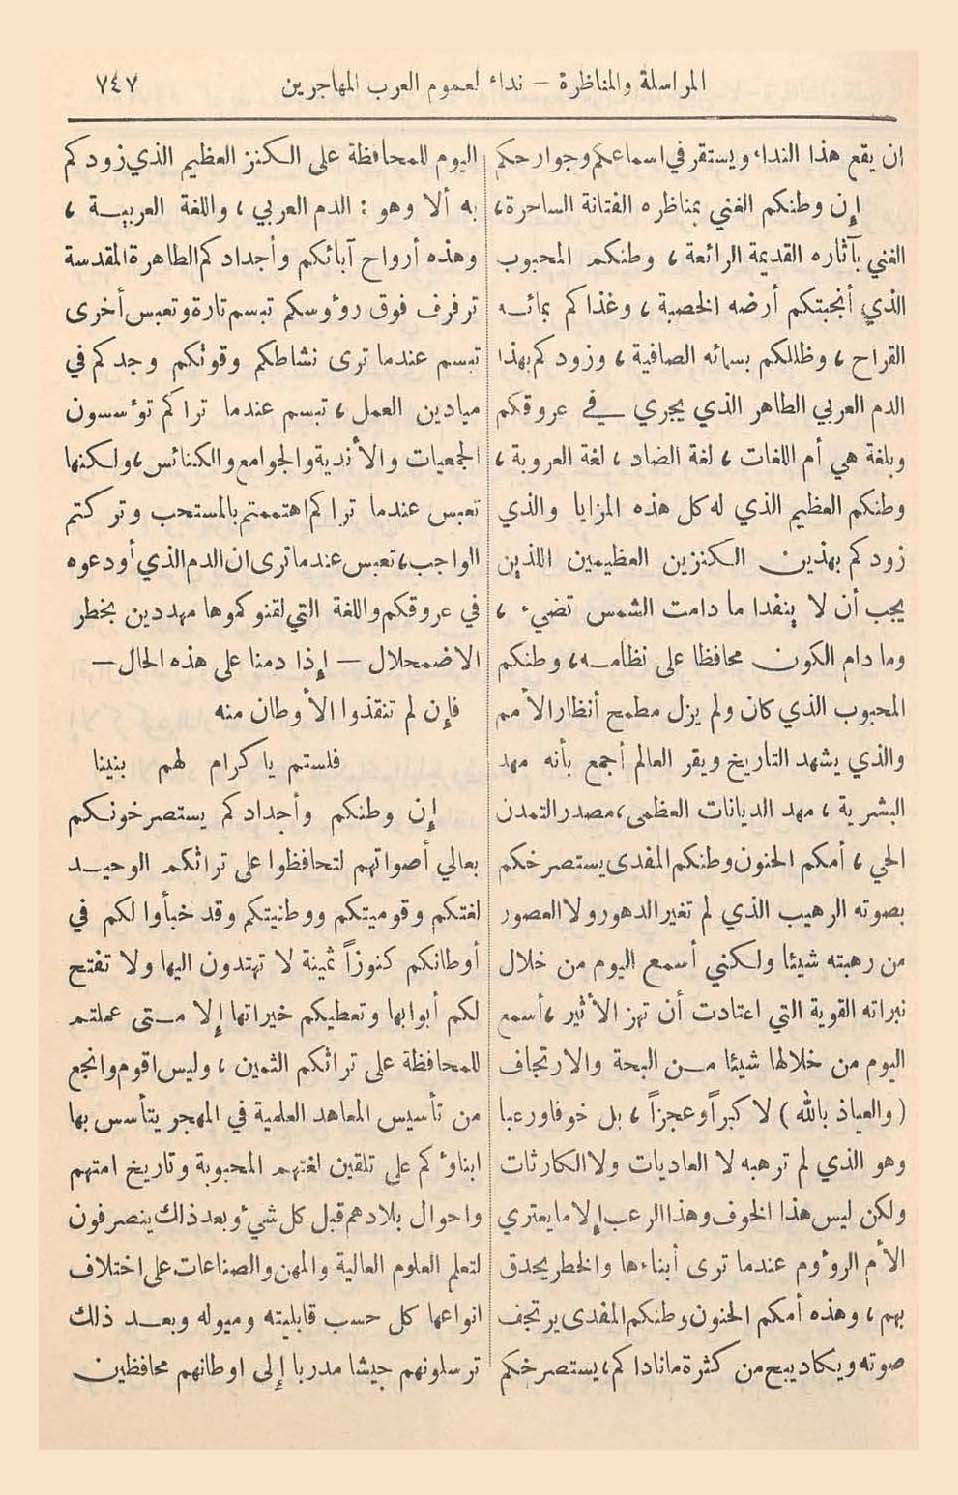 المراسلة والمناظرة — نداء لعموم العرب المهاجرين ٧٤٧
ان يقع هذا النداء ويستقر في اسماعكم وجوارحكم
إن وطنكم الغني بمناظره الفتانة الساحرة ،
الغني بآثاره القديمة الرائعة ، وطنكم المحبوب
الذي أنجبتكم أرضه الخصبة ، وغذاكم بمائه
القراح ، وظللكم بسمائه الصافية ، وزودكم بهذا
الدم العربي الطاهر الذي يجري في عروقكم
وبلغة هي أم اللغات ، لغة الضاد ، لغة العروبة ،
وطنكم العظيم الذي له كل هذه المزايا والذي
زودكم بهذين الكنزين العظيمين اللذين
يجب أن لا ينفدا ما دامت الشمس تضيء ،
وما دام الكون محافظا على نظامه ، وطنكم
المحبوب الذي كان ولم يزل مطمح أنظار الأمم
والذي يشهد التاريخ ويقر العالم أجمع بأنه مهد
البشرية ، مهد الديانات العظمى ، مصدر التمدن
الحي ، أمكم الحنون وطنكم المفدى يستصرخكم
بصوته الرهيب الذي لم تغير الدهور ولا العصور
من رهبته شيئا ولكني أسمع اليوم من خلال
نبراته القوية التي اعتادت أن تهز الأثير ، أسمع
اليوم من خلالها شيئا من البحة والارتجاف
( والعياذ بالله ) لا كبراً وعجزاً ، بل خوفا ورعبا
وهو الذي لم ترهبه لا العاديات ولا الكارثات
ولكن ليس هذا الخوف وهذا الرعب إلا ما يعتري
الأم الرؤوم عندما ترى أبناءها والخطر يحدق
بهم ، وهذه أمكم الحنون وطنكم المفدى يرتجف
صوته ويكاد يبح من كثرة ما ناداكم ، يستصرخكم
اليوم للمحافظة على الكنز العظيم الذي زودكم
به ألا وهو : الدم العربي ، واللغة العربية ،
وهذه أرواح آبائكم وأجدادكم الطاهرة المقدسة
ترفرف فوق رؤوسكم تبسم تارة وتعبس أخرى
تبسم عندما ترى نشاطكم وقوتكم وجدكم في
ميادين العمل ، تبسم عندما تراكم تؤسسون
الجمعيات والأندية والجوامع والكنائس ، ولكنها
تعبس عندما تراكم اهتممتم بالمستحب وتركتم
الواجب ، تعبس عندما ترى ان الدم الذي أودعوه
في عروقكم واللغة التي لقنوكموها مهددين بخطر
الاضمحلال — إذا دمنا على هذه الحال —
فإن لم تنقذوا الأوطان منه
فلستم يا كرام لهم بنينا
إن وطنكم وأجدادكم يستصرخونكم
بعالي أصواتهم لتحافظوا على تراثكم الوحيد
لغتكم وقوميتكم ووطنيتكم وقد خبأوا لكم في
أوطانكم كنوزاً ثمينة لا تهتدون اليها ولا تفتح
لكم أبوابها وتعطيكم خيراتها إلا متى عملتم
للمحافظة على تراثكم الثمين ، وليس اقوم وانجع
من تأسيس المعاهد العلمية في المهجر يتأسس بها
ابناؤكم على تلقين لغتهم المحبوبة وتاريخ امتهم
واحوال بلادهم قبل كل شيء وبعد ذلك ينصرفون
لتعلم العلوم العالية والمهن والصناعات على اختلاف
انواعها كل حسب قابليته وميوله وبعد ذلك
ترسلونهم جيشا مدربا إلى اوطانهم محافظين